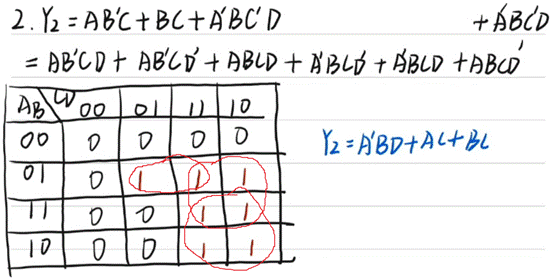 2. Y₂ = AB'C + BC + A'BC'D + A'BC'D
= AB'CD + AB'CD' + ABCD + A'BCD' + A'BCD + ABCD'
AB\CD 00 01 11 10
00 0 0 0 0
01 0 1 1 1
11 0 0 1 1
10 0 0 1 1
Y₂ = A'BD + AC + BC